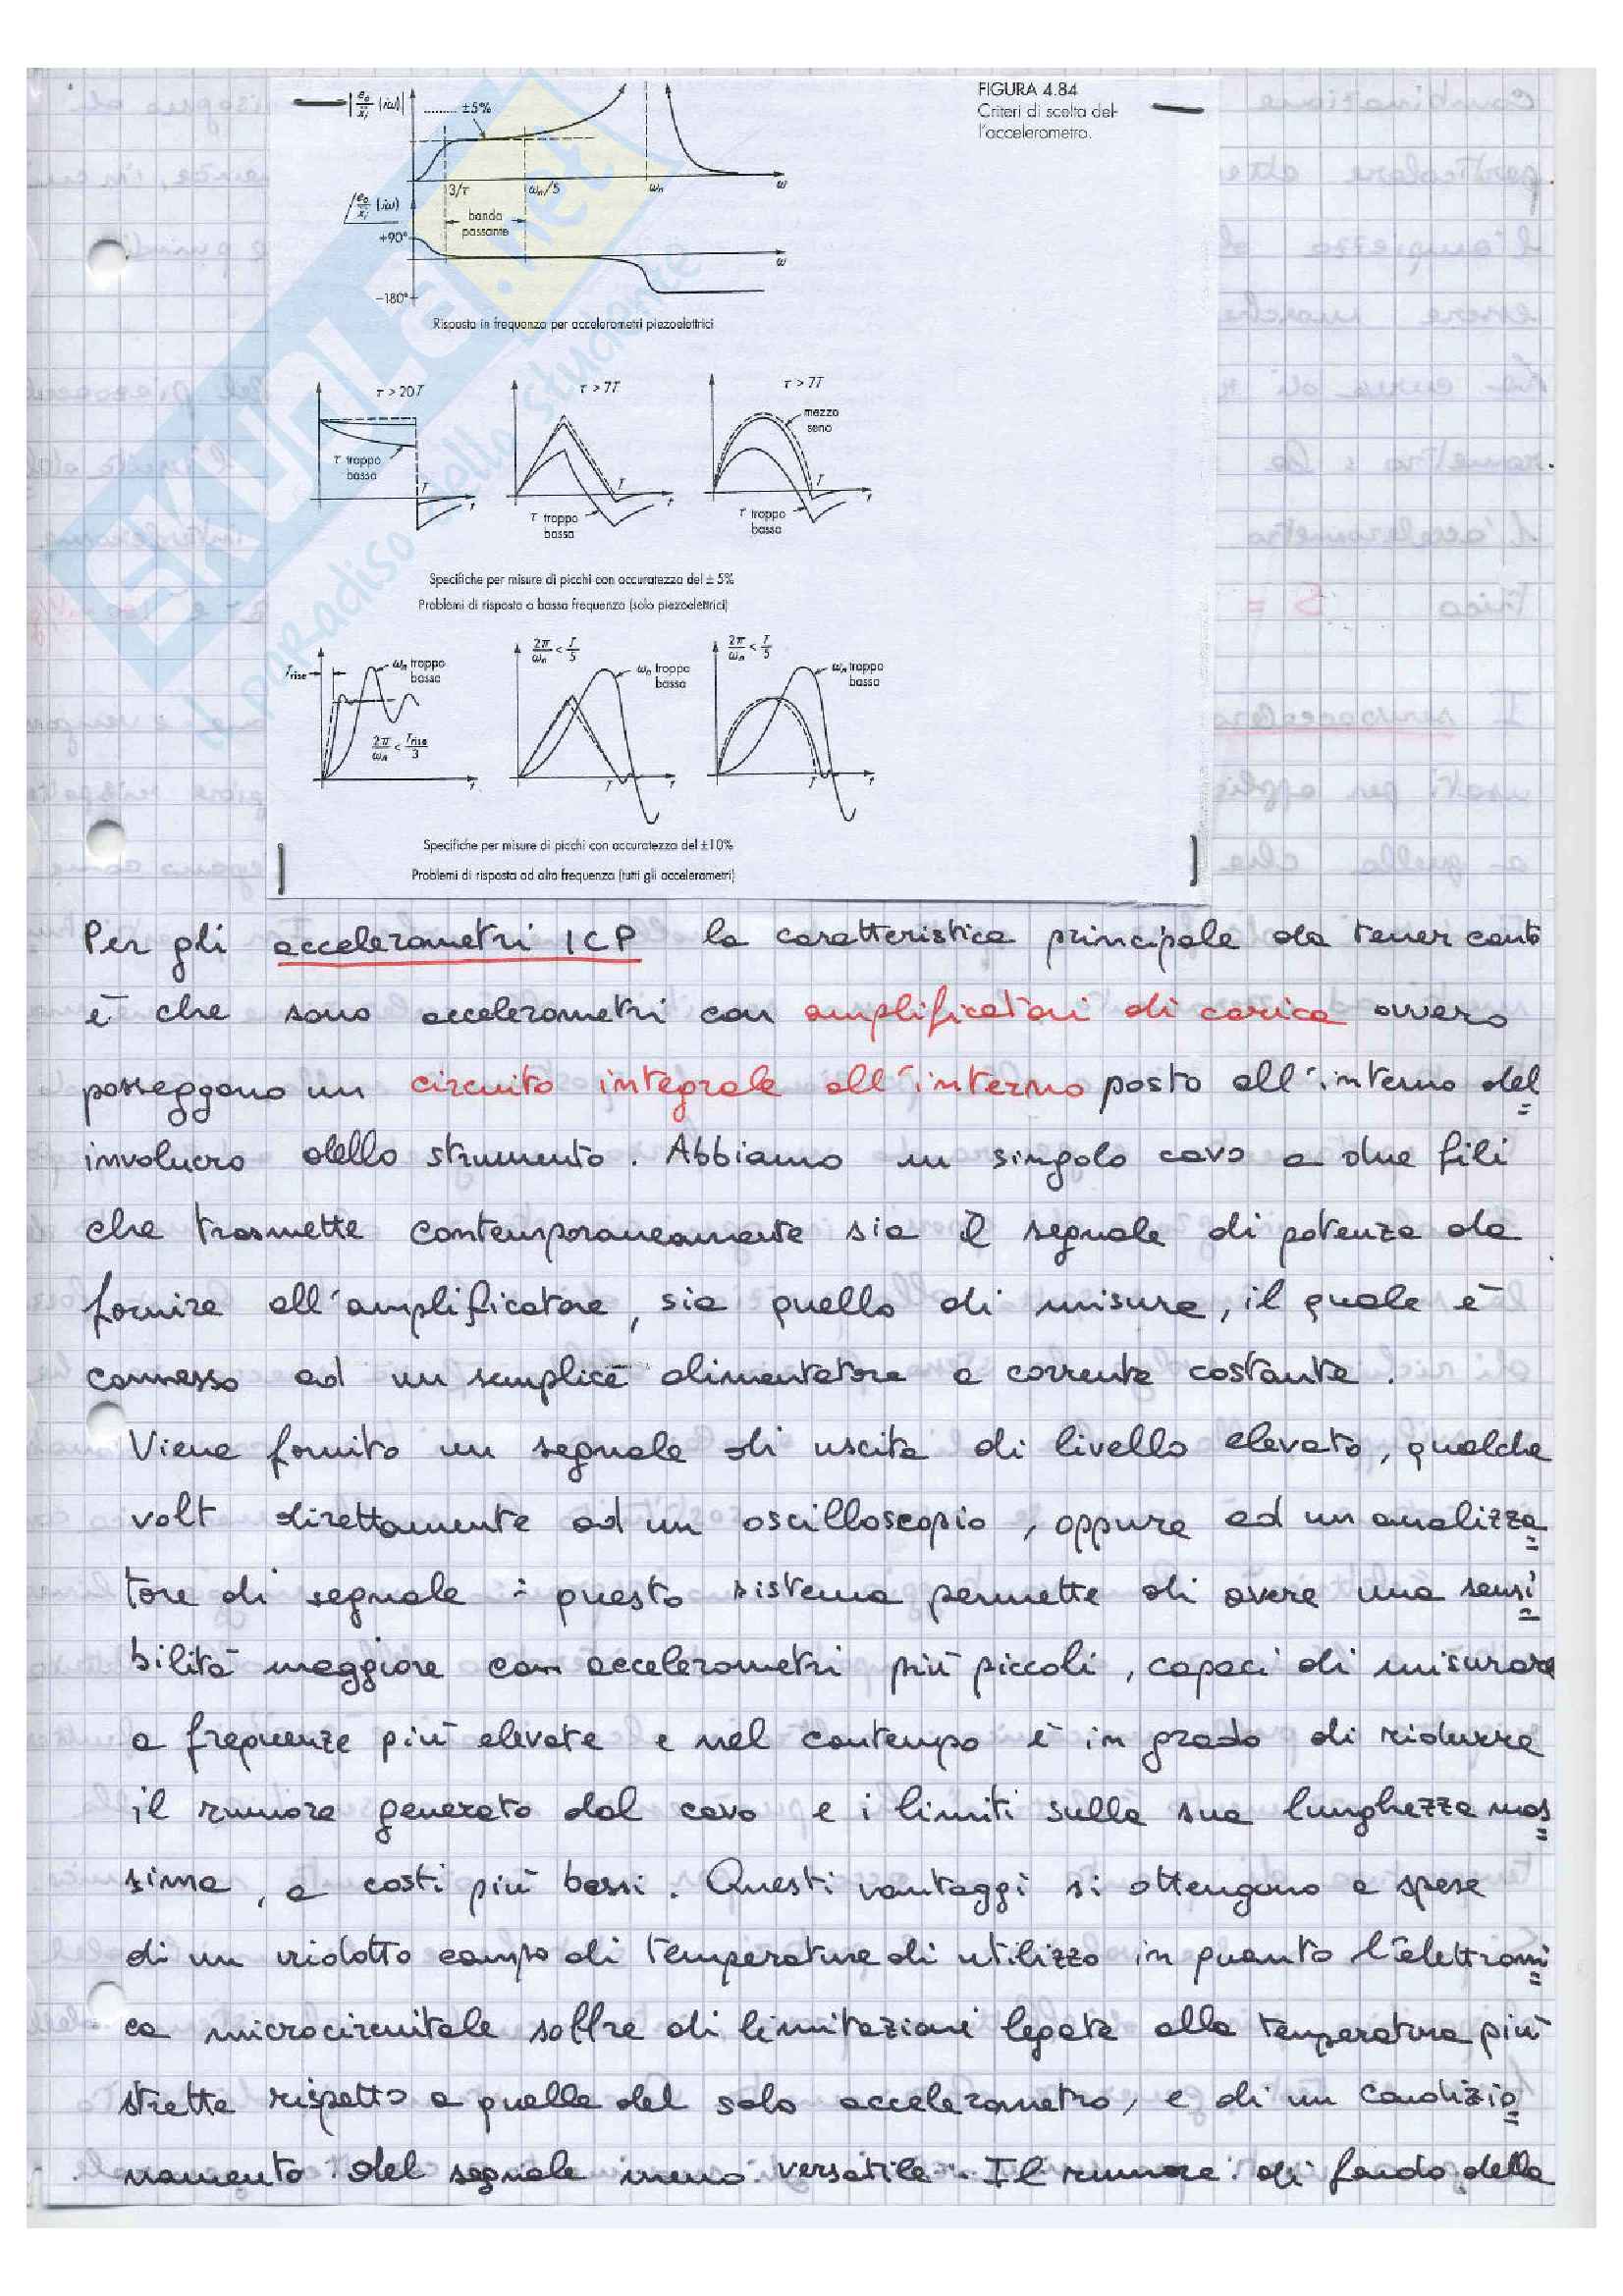 FIGURA 4.84
Criteri di scelta del-
l'accelerometro.
|e₀/ẍᵢ (iω)|
±5%
3/τ
ωₙ/5
ωₙ
ω
e₀/ẍᵢ (iω)
+90°
banda
passante
ω
-180°
Risposta in frequenza per accelerometri piezoelettrici
τ > 20T
τ > 7T
τ > 7T
mezzo
seno
τ troppo
bassa
T
t
τ troppo
bassa
T
t
τ troppo
bassa
T
t
Specifiche per misure di picchi con accuratezza del ± 5%
Problemi di risposta a bassa frequenza (solo piezoelettrici)
Trise
ωₙ troppo
bassa
2π/ωₙ < Trise/3
t
2π/ωₙ < T/5
ωₙ troppo
bassa
T
t
2π/ωₙ < T/5
ωₙ troppo
bassa
T
t
Specifiche per misure di picchi con accuratezza del ±10%
Problemi di risposta ad alta frequenza (tutti gli accelerometri)
Per gli accelerometri ICP la caratteristica principale da tener conto
è che sono accelerometri con amplificatori di carica ovvero
posseggono un circuito integrale all'interno posto all'interno del
involucro dello strumento. Abbiamo un singolo cavo a due fili
che trasmette contemporaneamente sia il segnale di potenza da
fornire all'amplificatore, sia quello di misura, il quale è
connesso ad un semplice alimentatore a corrente costante.
Viene fornito un segnale di uscita di livello elevato, qualche
volt direttamente ad un oscilloscopio, oppure ed un analizza
tore di segnale : questo sistema permette di avere una sensi
bilità maggiore con accelerometri più piccoli, capaci di misurare
a frequenze più elevate e nel contempo è in grado di ridurre
il rumore generato dal cavo e i limiti sulla sua lunghezza mas
sima, a costi più bassi. Questi vantaggi si ottengono a spese
di un ridotto campo di temperature di utilizzo in quanto l'elettroni
ca microcircuitale soffre di limitazioni legate alla temperatura più
strette rispetto a quelle del solo accelerometro, e di un condizio
namento del segnale meno versatile. Il rumore di fondo della
SKUOLA.net
il paradiso dello studente